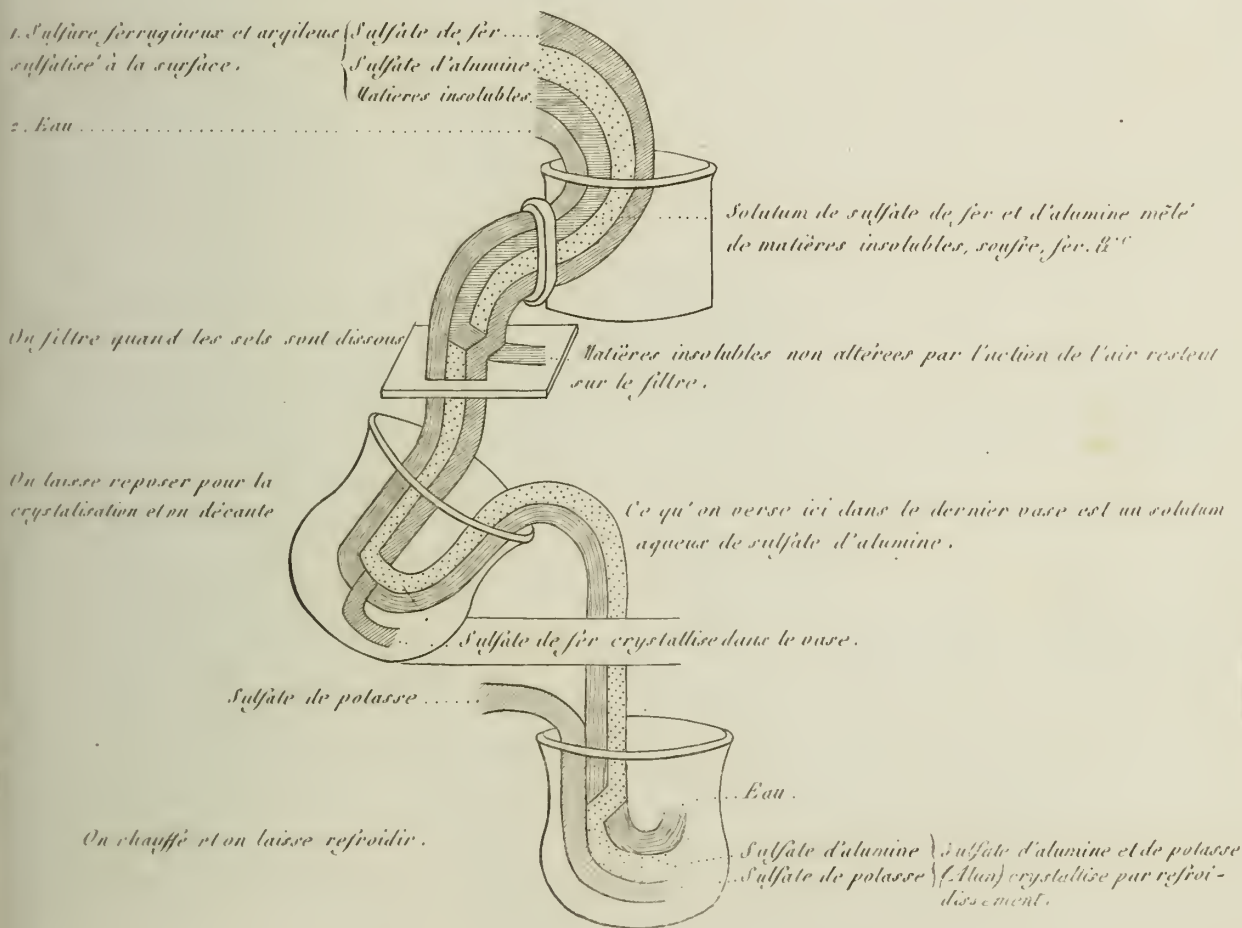 1. Sulfure ferrugineux et argileux { Sulfate de fer ....
sulfatisé à la surface. { Sulfate d'alumine.
{ Matieres insolubles.
2. Eau ...............
Solutum de sulfate de fer et d'alumine mêlé
de matières insolubles, soufre, fer. &ca
On filtre quand les sels sont dissous
Matières insolubles non altérées par l'action de l'air restent
sur le filtre.
On laisse reposer pour la
crystalisation et on décante
Ce qu'on verse ici dans le dernier vase est un solutum
aqueux de sulfate d'alumine.
Sulfate de fer crystallise dans le vase.
Sulfate de potasse ......
Eau.
On chauffé et on laisse refroidir.
Sulfate d'alumine } Sulfate d'alumine et de potasse
Sulfate de potasse } (Alun) crystallise par refroi-
dissement.